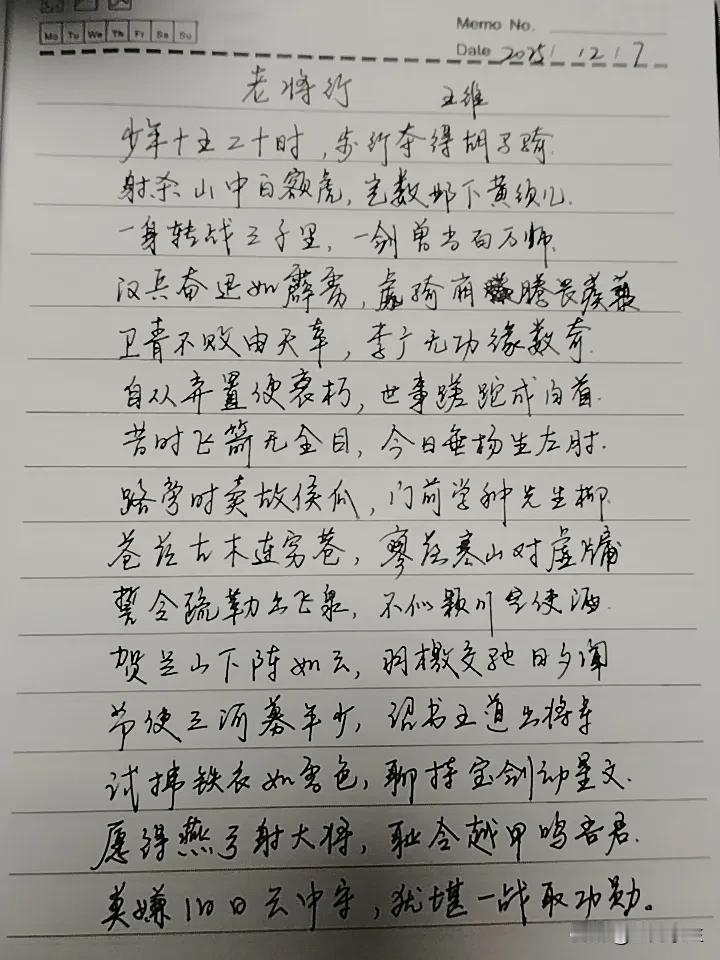 Mo Tu We Th Fr Sa Su
Memo No.
Date 2025/12/7
老将行 王维
少年十五二十时，步行夺得胡马骑.
射杀山中白额虎，岂数邺下黄须儿.
一身转战三千里，一剑曾当百万师.
汉兵奋迅如霹雳，虏骑崩腾畏蒺藜
卫青不败由天幸，李广无功缘数奇.
自从弃置便衰朽，世事蹉跎成白首.
昔时飞箭无全目，今日垂杨生左肘.
路旁时卖故侯瓜，门前学种先生柳.
苍茫古木连穷巷，寥落寒山对虚牖
誓令疏勒出飞泉，不似颍川空使酒.
贺兰山下阵如云，羽檄交驰日夕闻
节使三河募年少，诏书五道出将军
试拂铁衣如雪色，聊持宝剑动星文.
愿得燕弓射大将，耻令越甲鸣吾君.
莫嫌旧日云中守，犹堪一战取功勋。